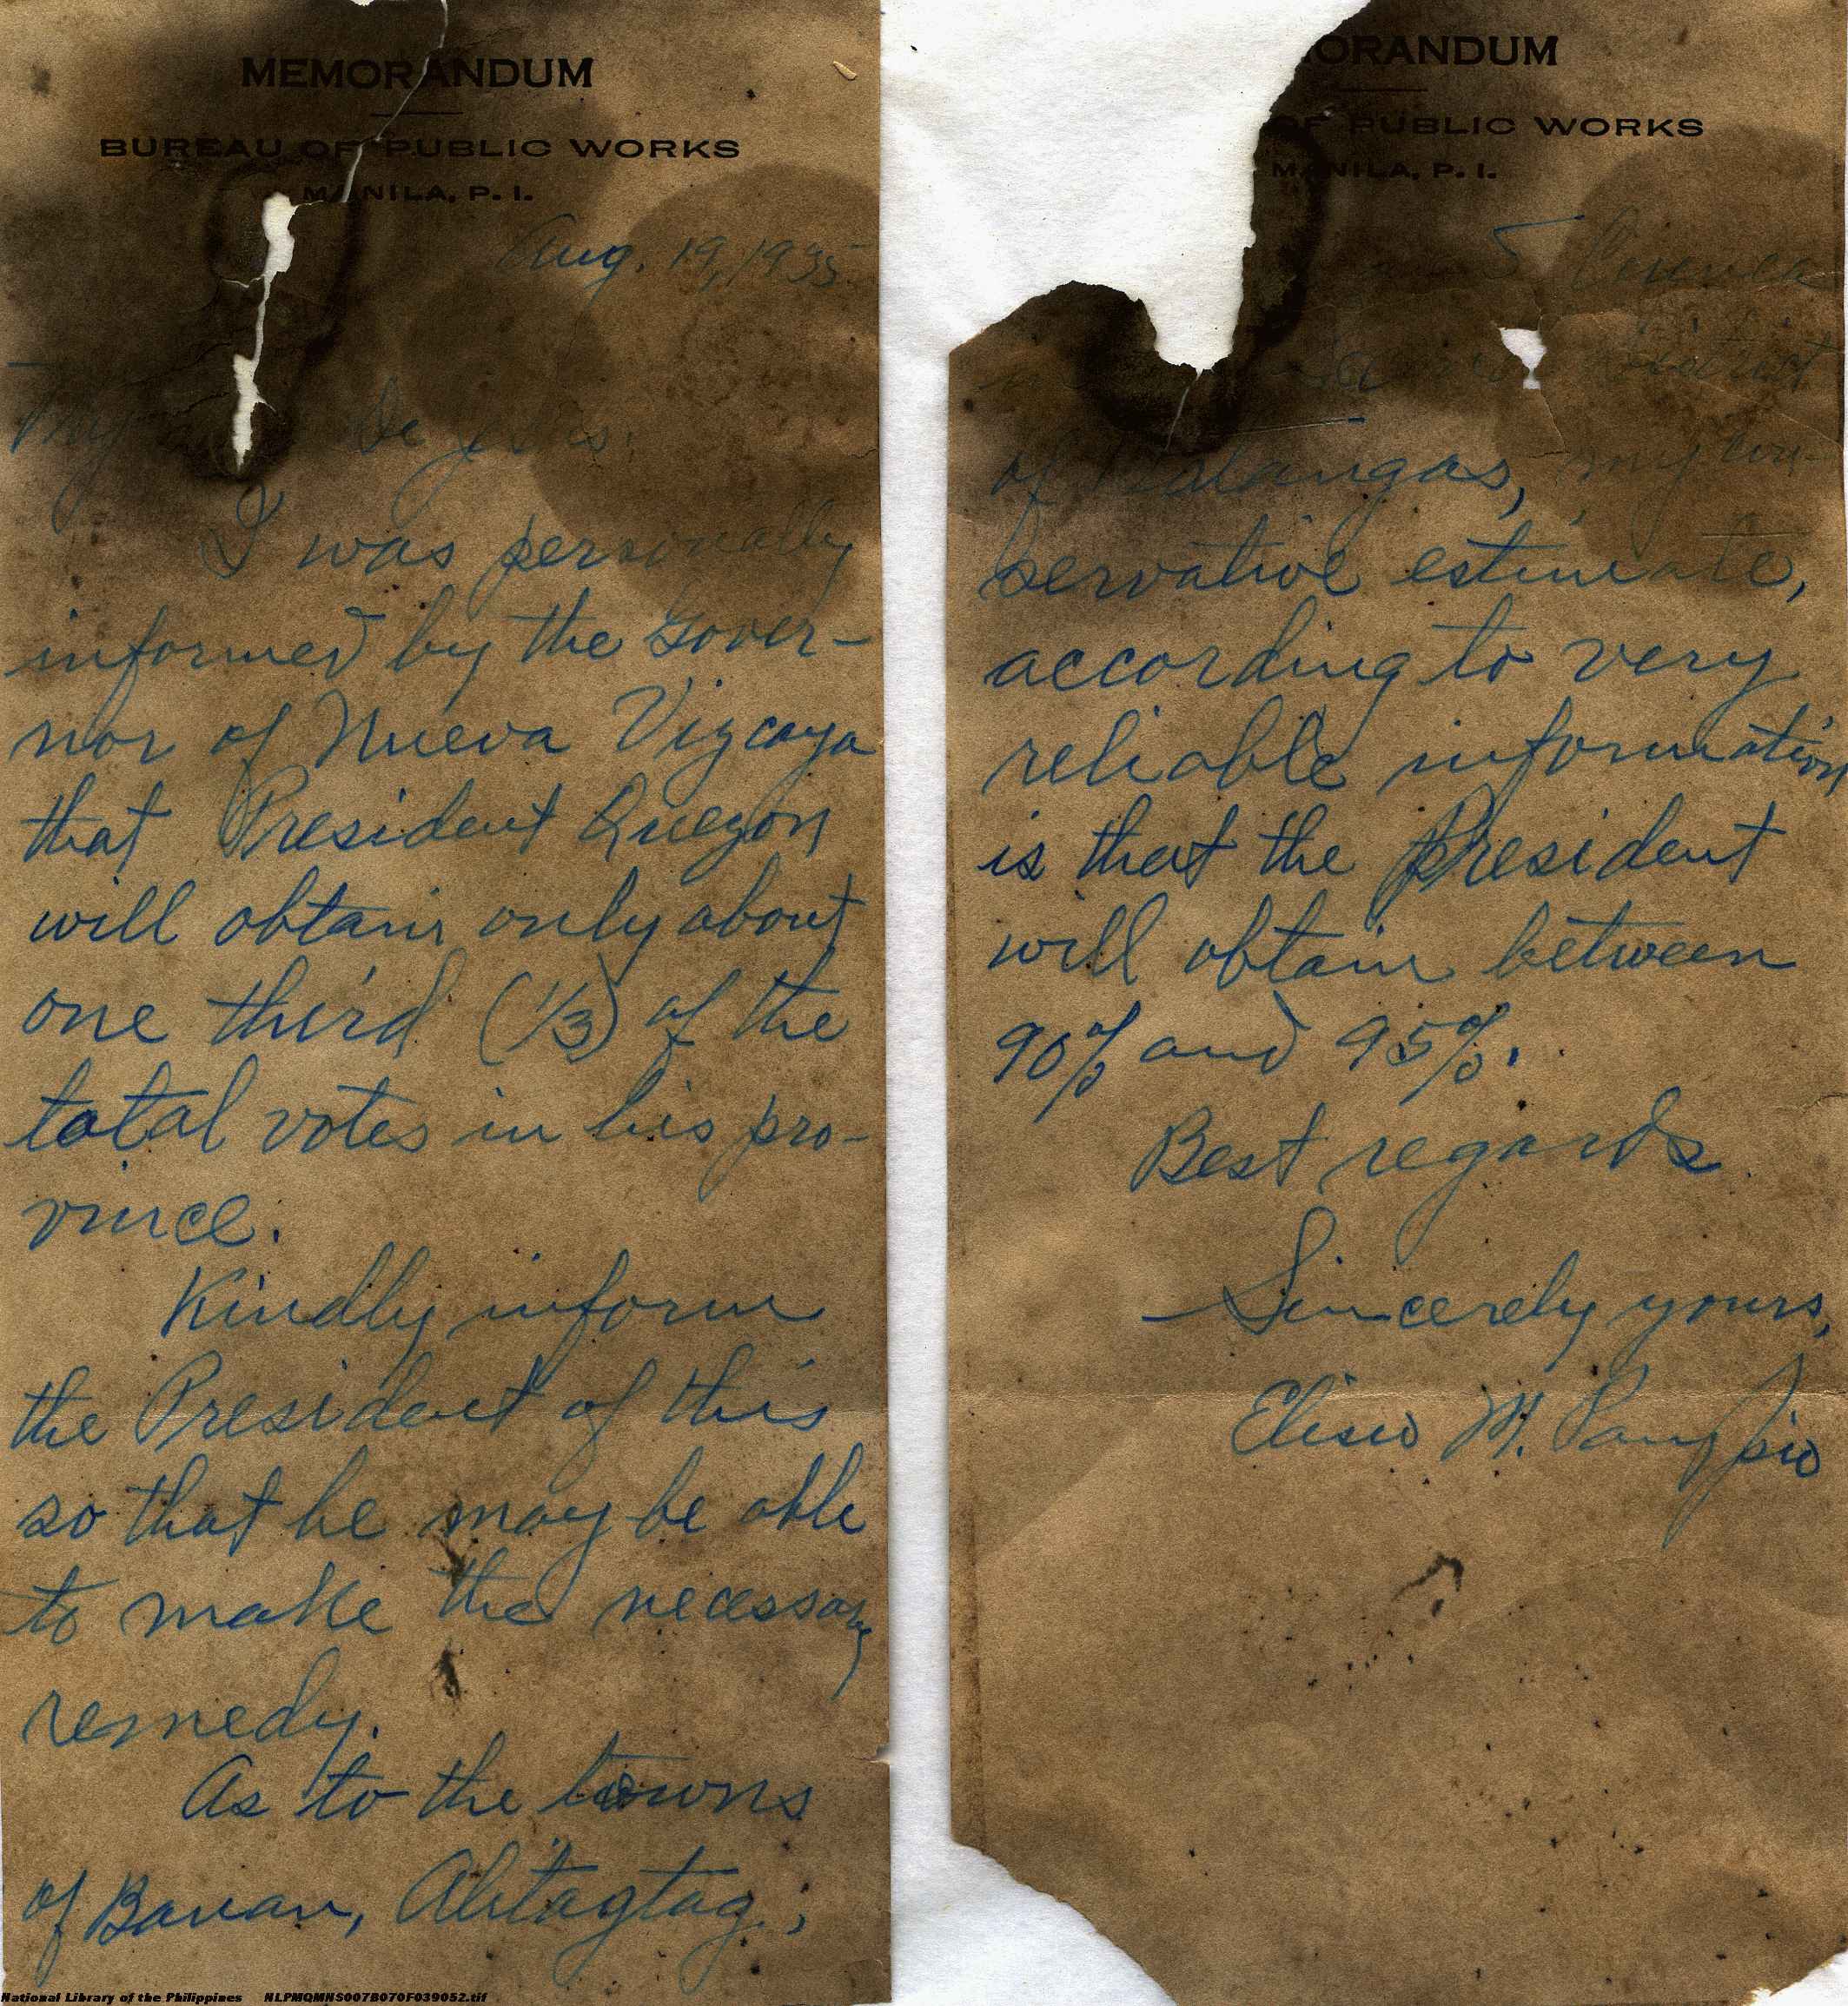 MEMORANDUM
BUREAU OF PUBLIC WORKS
MANILA, P. I.
Aug. 19, 1935
My de
I was personally
informed by the Gover-
nor of Nueva Vizcaya
that President Quezon
will obtain only about
one third (1/3) of the
total votes in his pro-
vince.
Kindly inform
the President of this
so that he may be able
to make the necessary
remedy.
As to the towns
of Bauan, Alitagtag,
ORANDUM
OF PUBLIC WORKS
MANILA, P. I.
district
of Batangas, my con-
servative estimate,
according to very
reliable information
is that the President
will obtain between
90% and 95%.
Best regards
Sincerely yours,
M.
National Library of the Philippines NLPMQMNS007B070F039052.tif